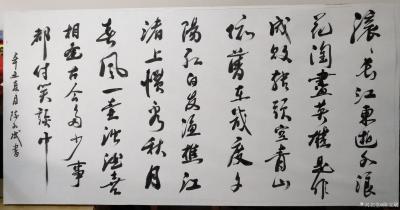 滚〻长江東逝水浪
花淘盡英雄是非
成敗转頭空青山
依舊在几度夕
陽红白发渔樵江
渚上惯看秋月
春風一壶浊酒喜
相逢古今多少事
都付笑談中
辛丑夏月